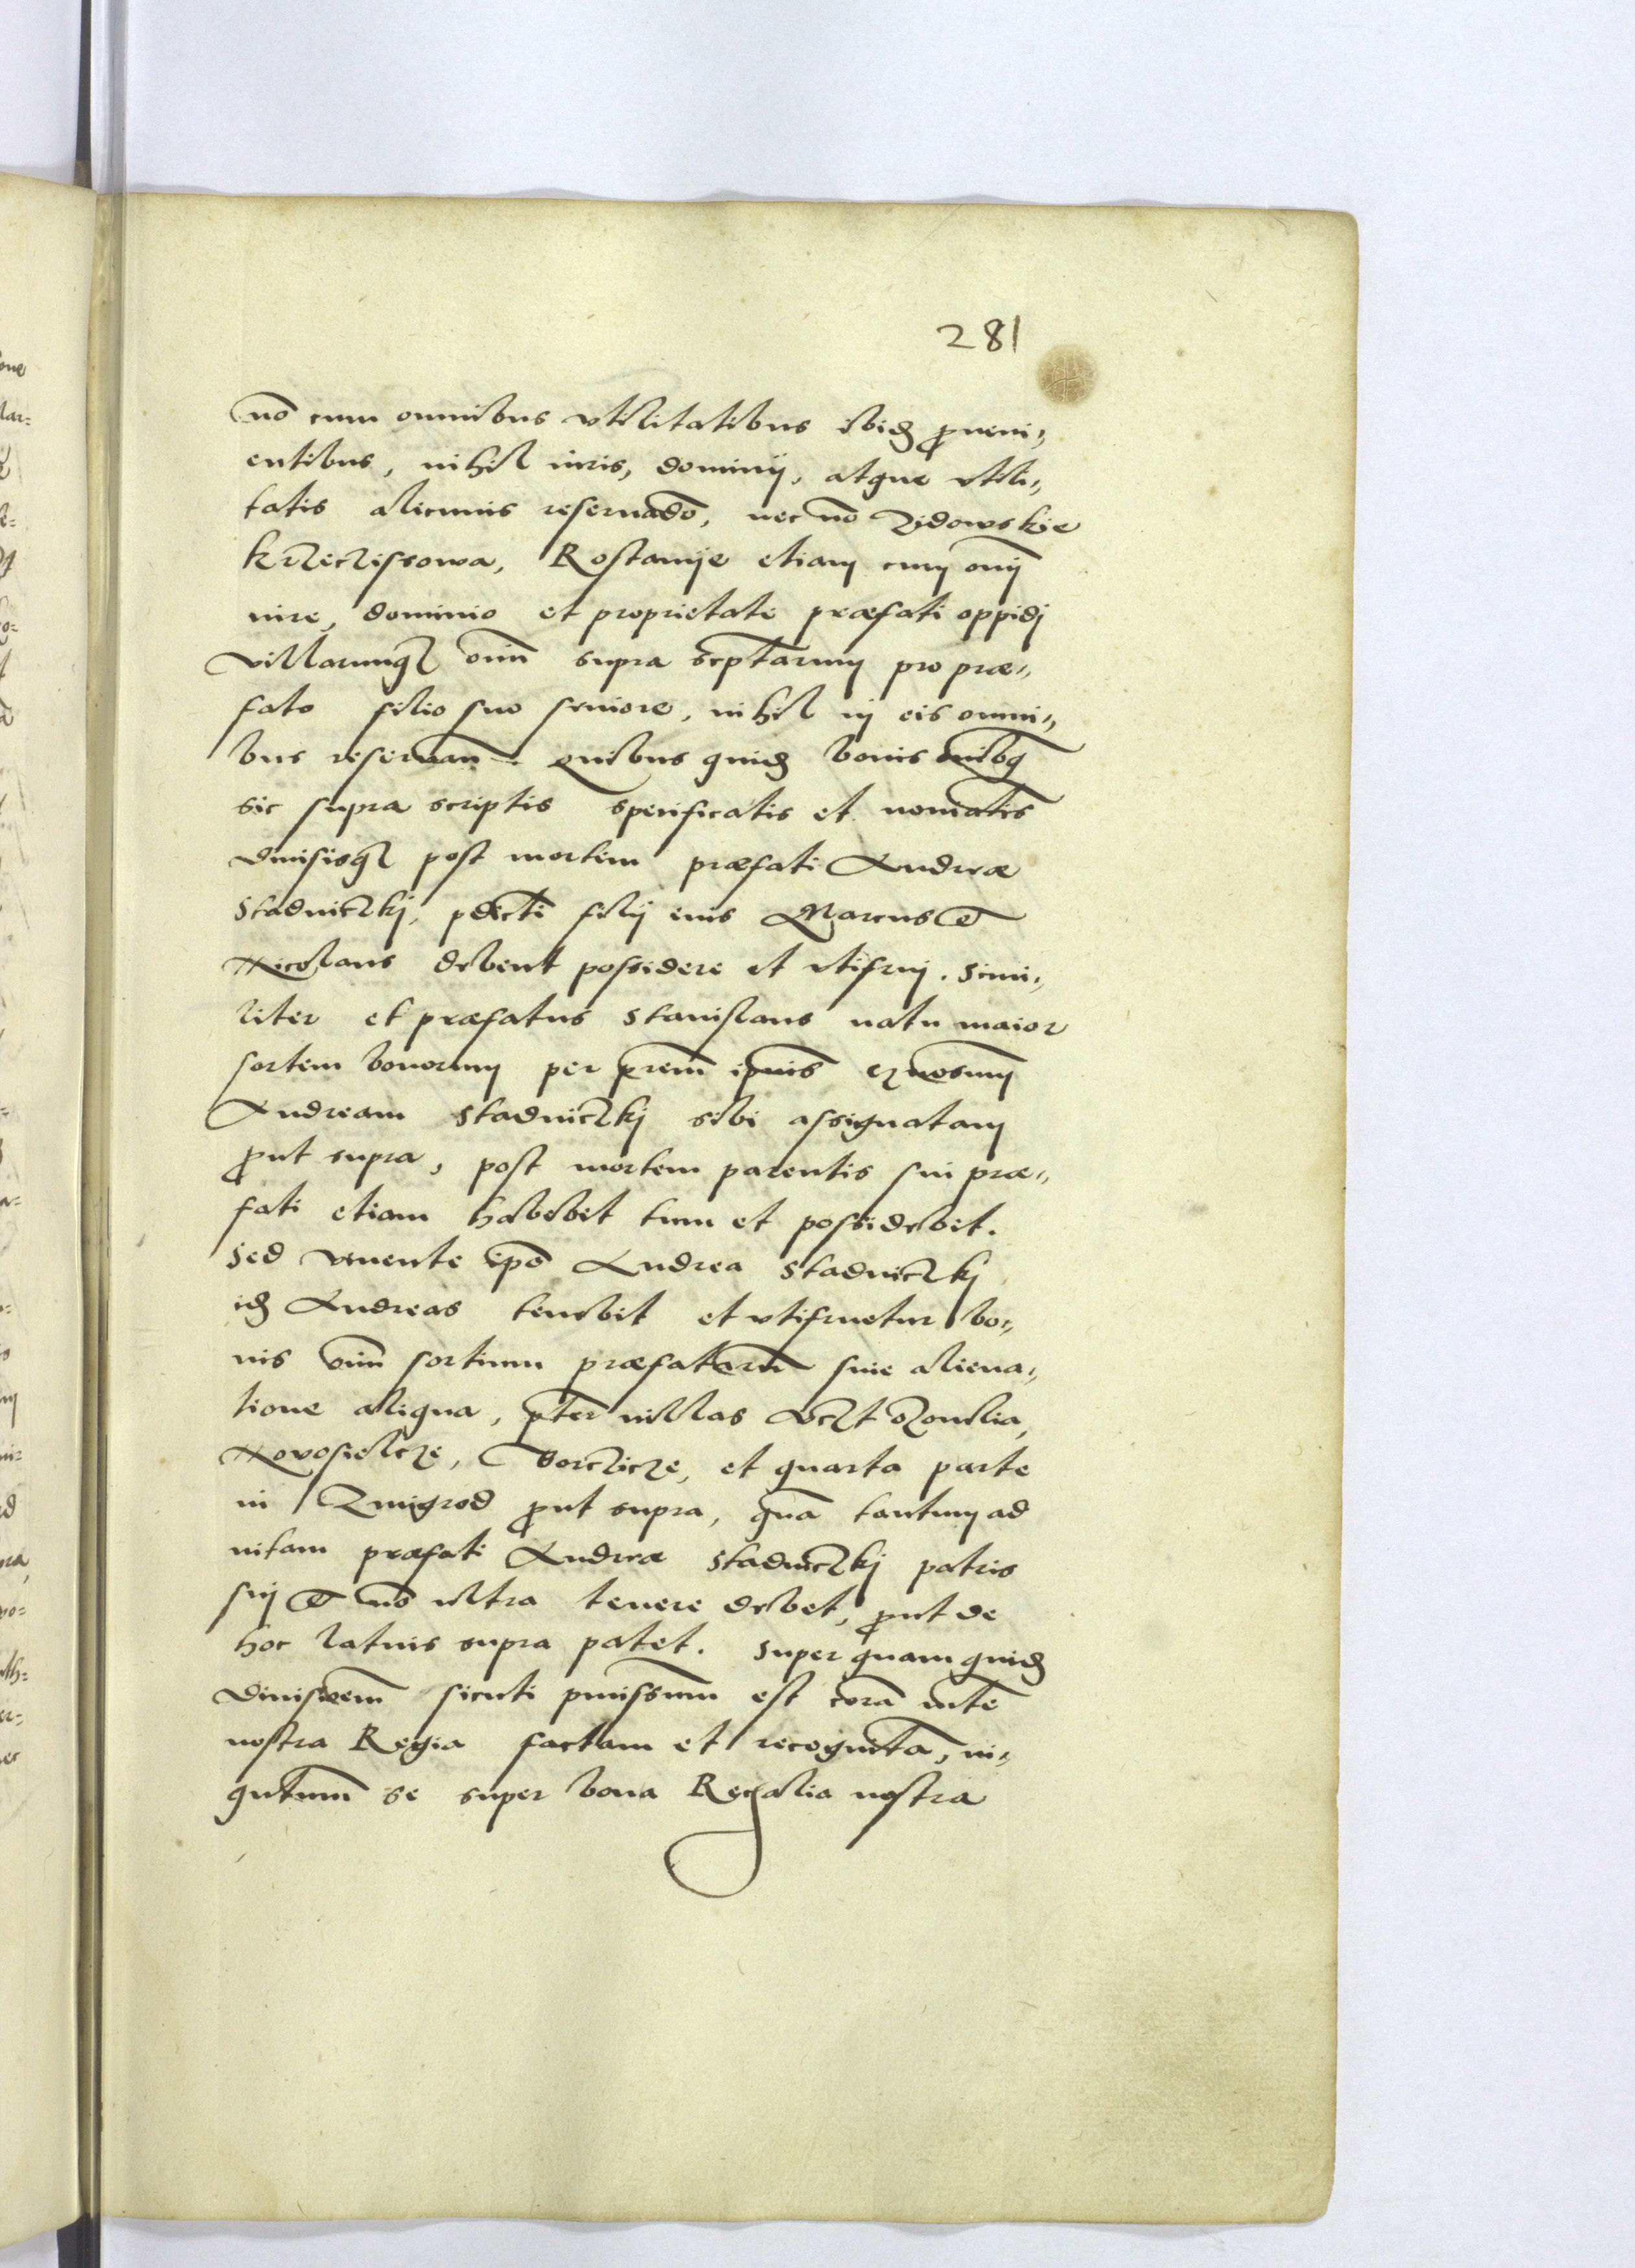 281
nō cum omnibus vtilitatibus ibidē ꝓueni„
entibus, nihil iuris, dominij, atque vtili„
tatis alicuius reseruādō, nec nō Zidowskie
Krzeczissowa, Rostanije etiam cum omi
iure, dominio et proprietate præfati oppidi
villarumq̃ oīm supra scptarum pro præ„
fato filio suo seniore, nihil in eis omni„
bus reseruan̄. quibus quidē bonis oībq̃
sic supra scriptis specificatis et nomīatis
diuisisq̃ post mortem præfati Andreæ
Stadniczkj, pdicti filij eius Marcus et
Nicolaus debent possidere et vtifrui. Simi„
liter et præfatus Stanislaus natu maior
sortem bonorum per prem̄ ipsius gnosum
Andream Stadniczkj sibi assignatam
ꝓut supra, post mortem parentis sui præ„
fati etiam habebit tum et possidebit.
Sed viuente ipō Andrea Stadniczkj
idē Andreas tenebit et vtifruetur bo„
nis oīm sortium præfatarū siue aliena„
tione aliqua, pter villas
Novosielcze, et quarta parte
in Zmigrod ꝓut supra, quā tantum ad
vitam præfati Andreæ Stadniczkj patris
sui et nō vltra tenere debet, ꝓut de
hoc latius supra patet. Super quam quidē
diuisioem̄ sicuti pmissum̄ est corā mte
nostra Regia factam et recognitā, in„
quātum̄ se super bona Regalia nostra